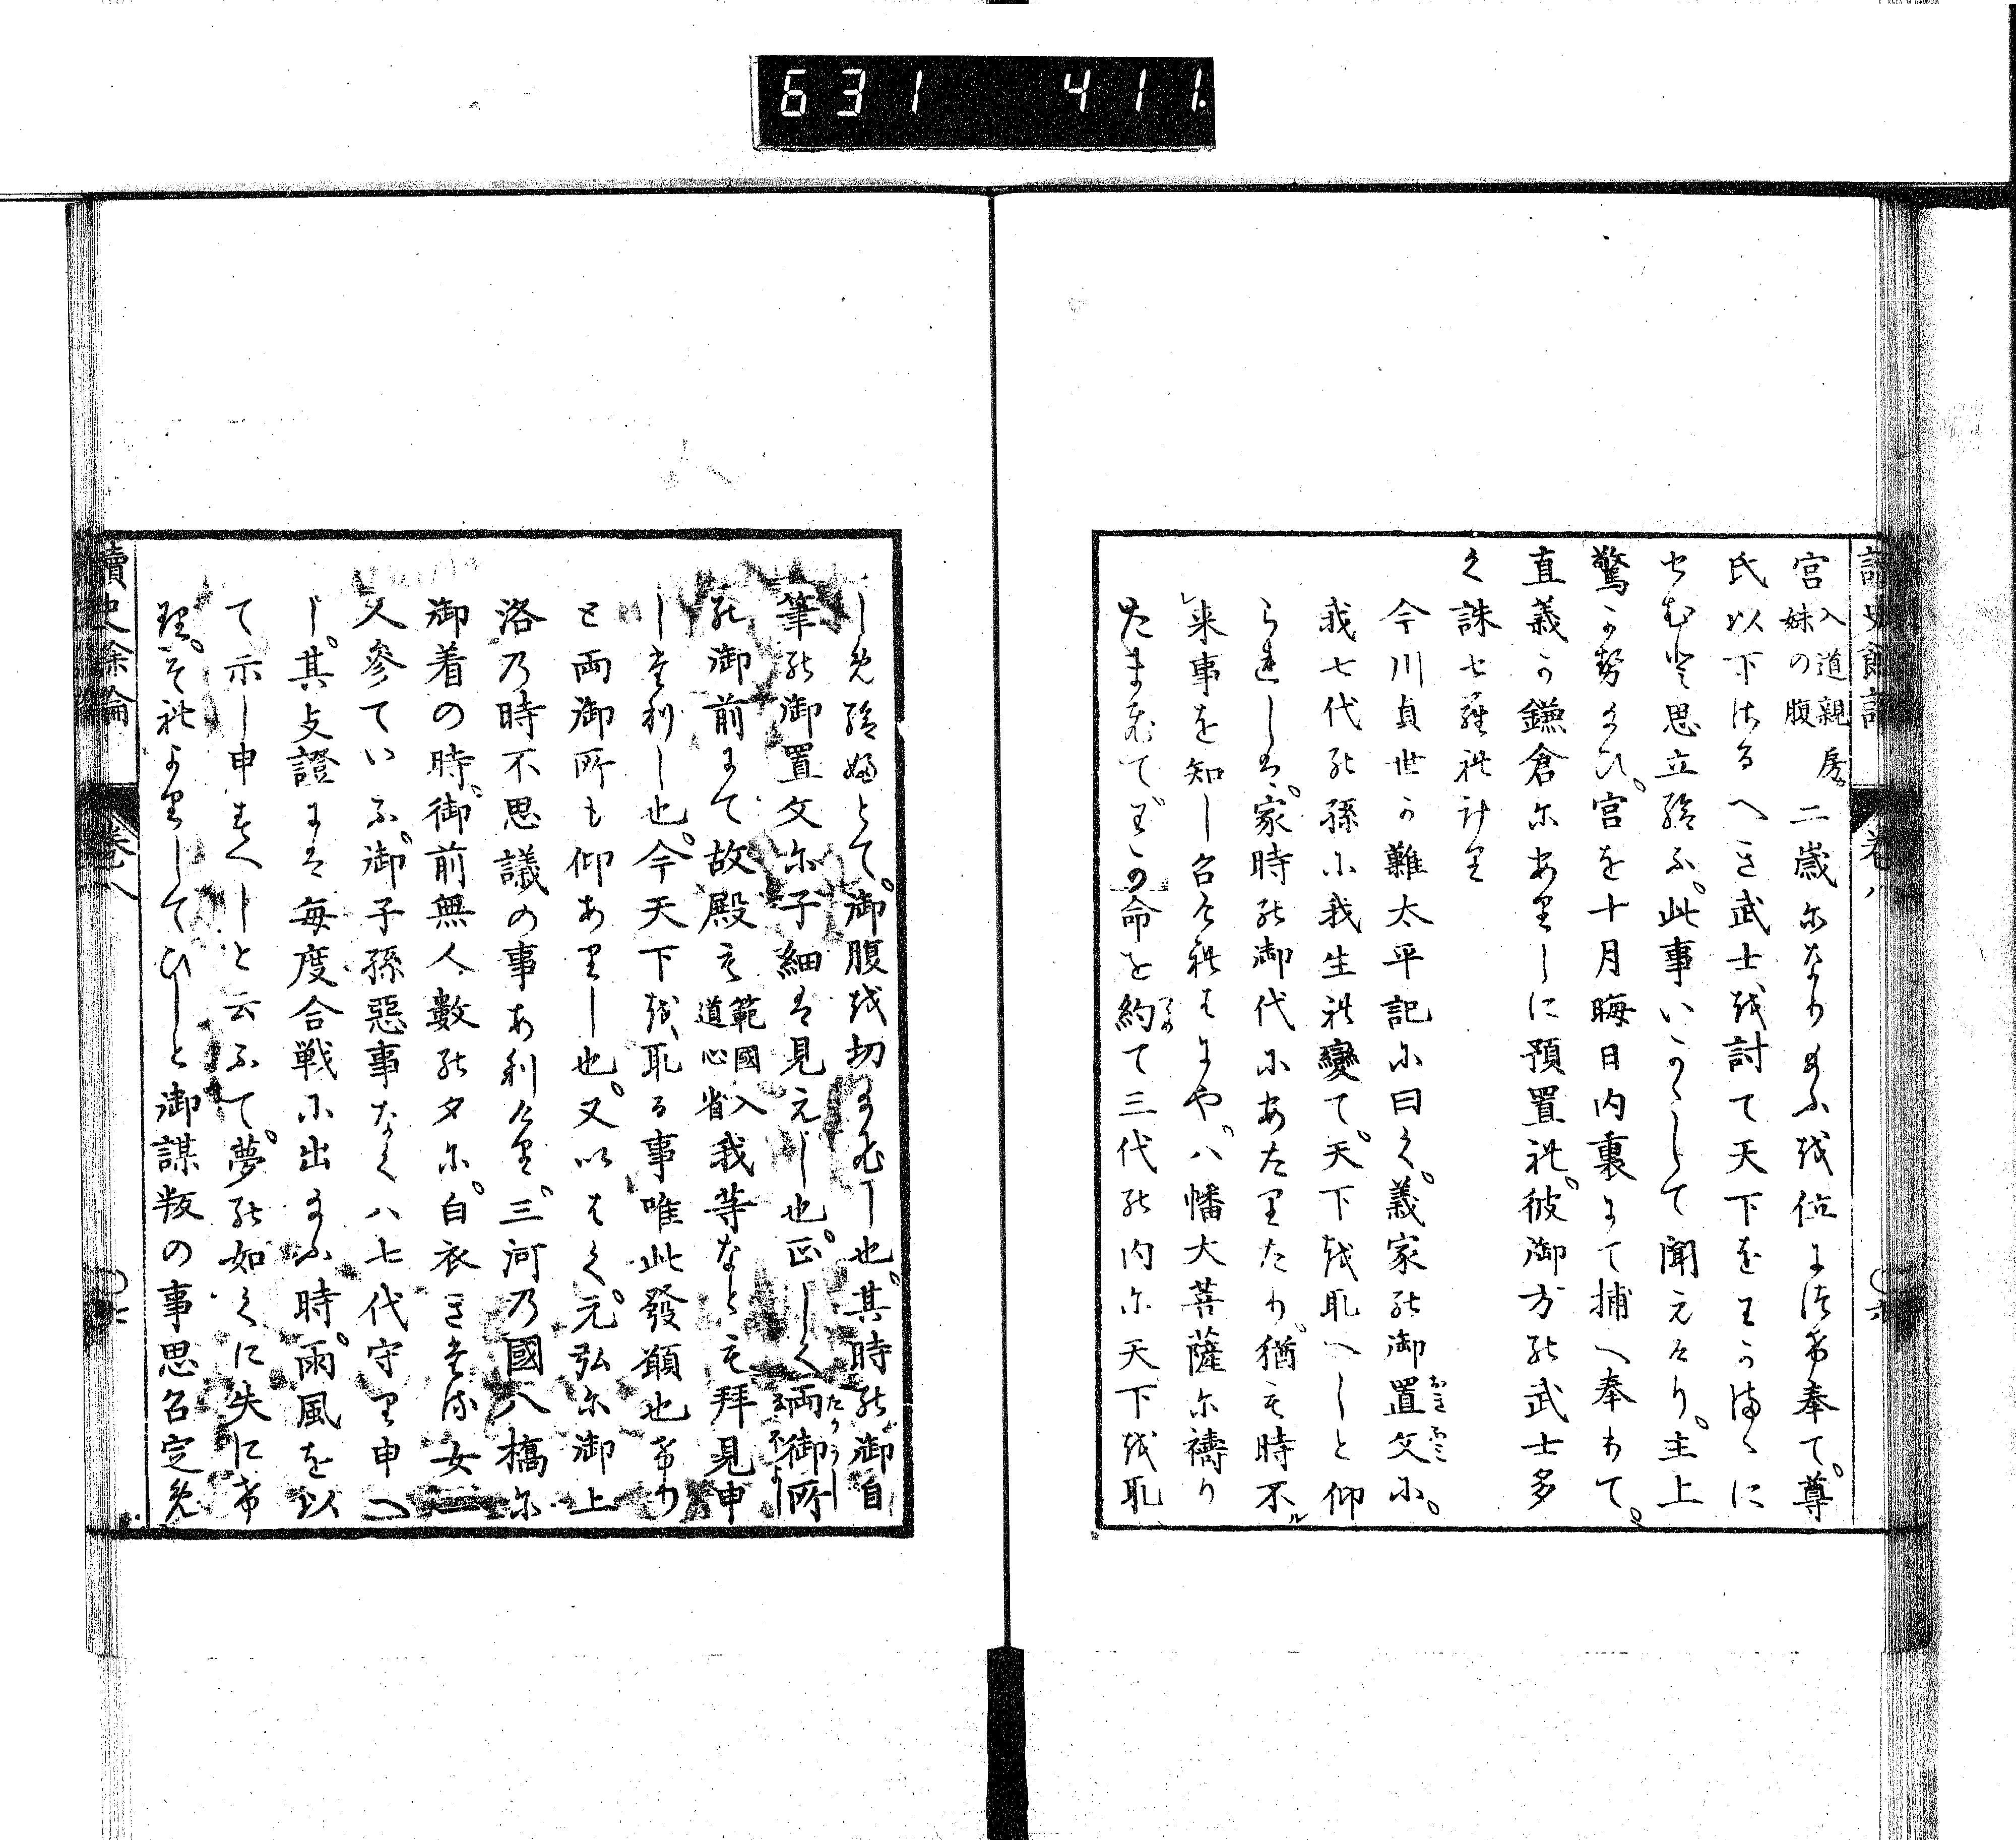 631 411.
讀史餘論 卷八
宮入道親房妹の腹二歳になりまふを位につけ奉て。尊
氏以下さるへき武士を討て天下をわかまゝに
せむと思立給ふ。此事いかゝして聞えけり。主上
驚かせ給ひ。宮を十月晦日内裏にて捕へ奉りて。
直義か鎌倉にありしに預置れ。彼御方の武士多
く誅せられけり
今川貞世か難太平記に曰く。義家の御置文に。
我七代の孫に我生れ變て。天下を取へしと仰
られしは。家時の御代にあたりたり。猶も時不ル
来事を知し召けれはにや。八幡大菩薩に禱り
たまひてわかの命を約て三代の内に天下を取
しめ給へとて。御腹を切まひし也。其時の御自
筆の御置文に子細は見えし也。正しく両御所
の御前にて故殿も範國入道心省我等なとも拜見申
したりし也。今天下を取る事唯此發願也けり
と両御所も仰ありし也。又いはく。元弘に御上
洛乃時不思議の事ありけり。三河乃國八橋に
御着の時。御前無人數の夕に。白衣きたる女一
人參ていふ。御子孫惡事なく八七代守り申へ
し。其支證には毎度合戦に出まふ時。雨風を以
て示し申すへしと云ふて。夢の如くに失にけ
り。それよりしてひしと御謀叛の事思召定め
讀史餘論 卷八